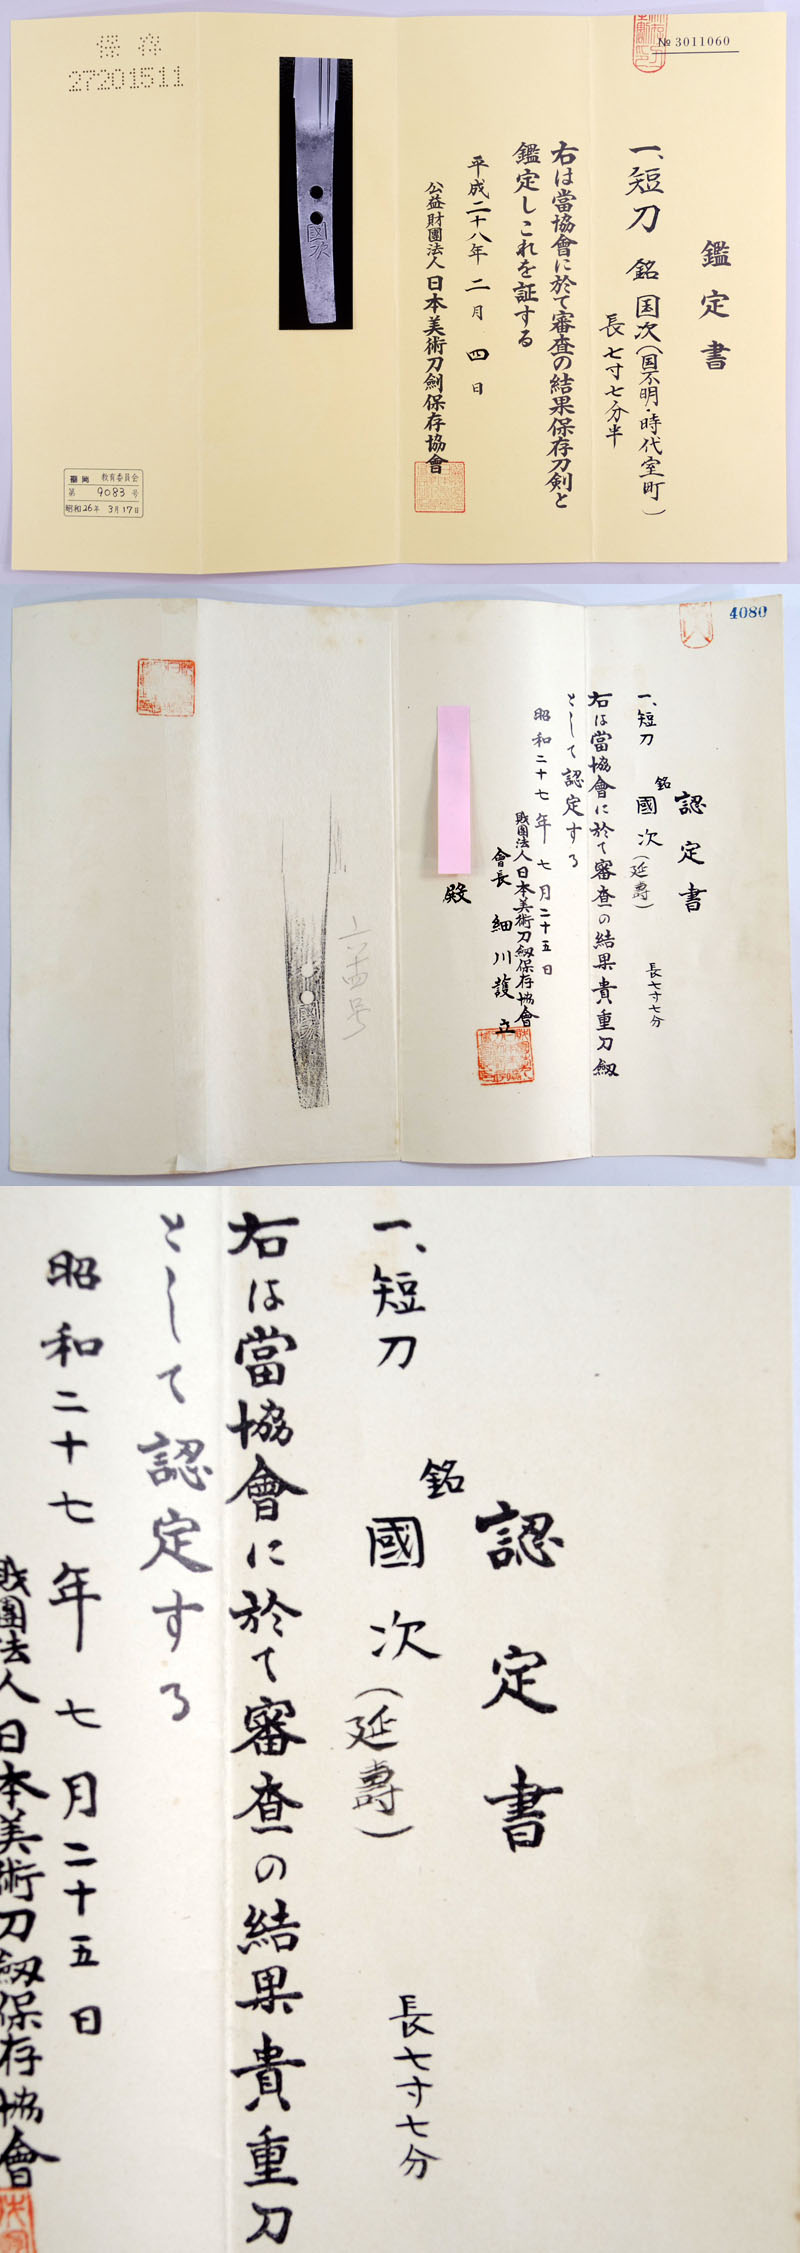 № 3011060
鑑定書
一、短刀 銘 国次(国不明・時代室町)
長七寸七分半
右は當協會に於て審査の結果保存刀剣と
鑑定しこれを証する
平成二十八年二月四日
公益財團法人日本美術刀劍保存協會
國次
保存
27201511
教育委員会
第 9083 号
昭和26年 3月17日
4080
認定書
一、短刀 銘 國次(延壽)
長七寸七分
右は當協會に於て審査の結果貴重刀劔
として認定する
昭和二十七年七月二十五日
財團法人日本美術刀劔保存協會
會長 細川護立
殿
國次
認定書
一、短刀 銘 國次(延壽)
長七寸七分
右は當協會に於て審査の結果貴重刀
として認定する
昭和二十七年七月二十五日
財團法人日本美術刀劔保存協會